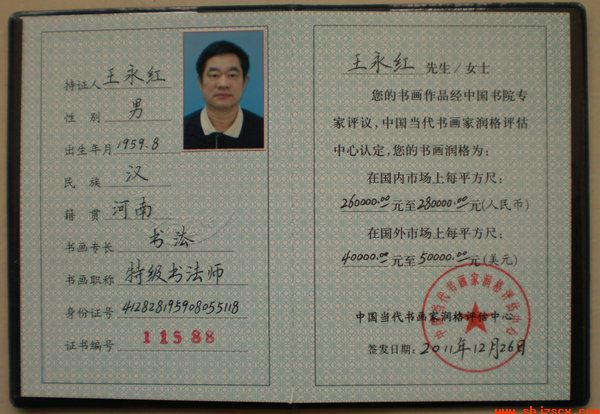 持证人 王永红
性 别 男
出生年月 1959.8
民 族 汉
籍 贯 河南
书画专长 书法
书画职称 特级书法师
身份证号 412828195908055118
证书编号 11588
王永红 先生/女士
您的书画作品经中国书院专
家评议，中国当代书画家润格评估
中心认定，您的书画润格为：
在国内市场上每平方尺：
260000.00元至280000.00元(人民币)
在国外市场上每平方尺：
40000.00元至50000.00(美元)
中国当代书画家润格评估中心
签发日期：2011年12月26日
中国当代书画家润格评估中心
www.sbjzscx.com